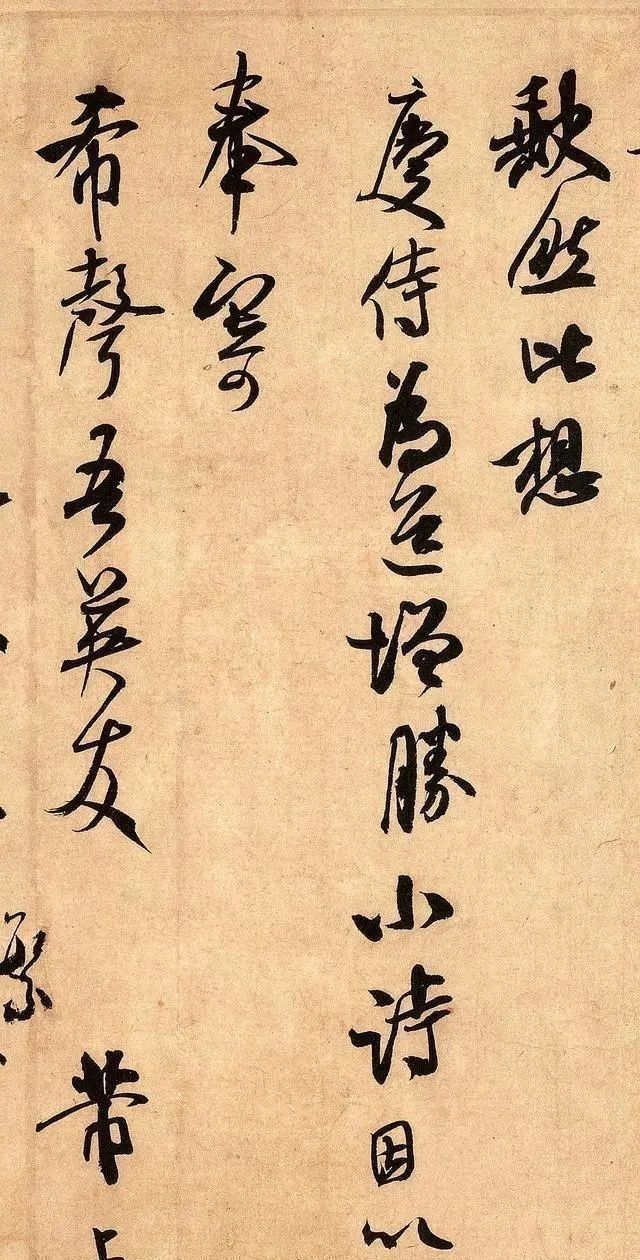 然比想
慶侍為道增勝小詩因以
奉寄
希聲吾英友 芾上